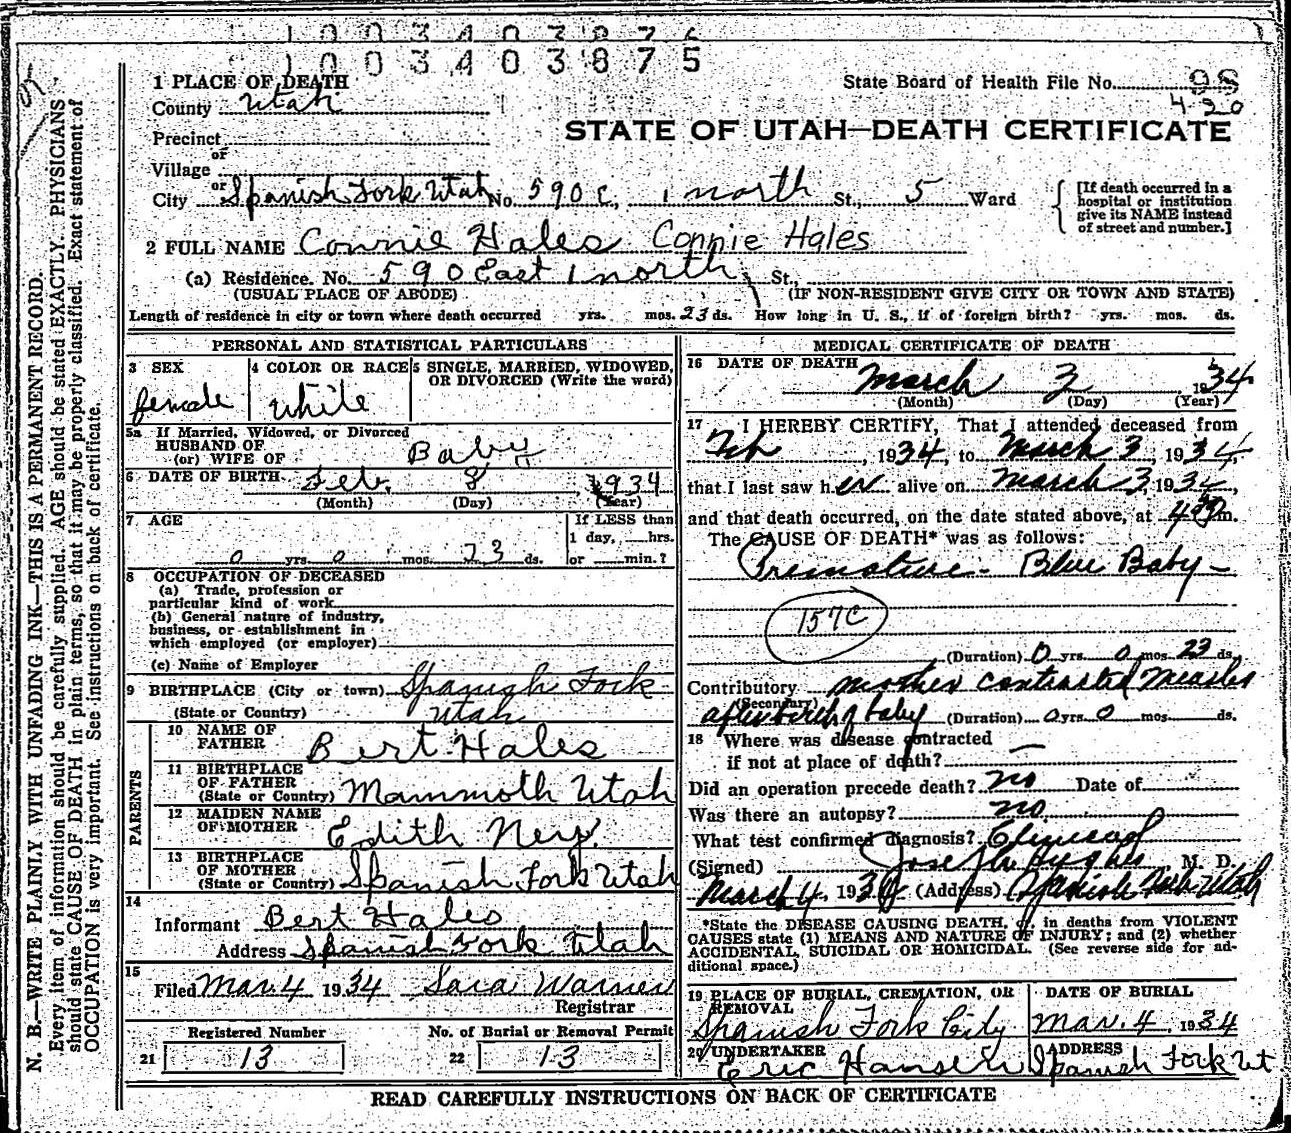 1003403875
1003403875
1 PLACE OF DEATH
State Board of Health File No. 98
County Utah
4-20
STATE OF UTAH—DEATH CERTIFICATE
Precinct
or
Village
or
City Spanish Fork Utah No. 590 E, 1 north St., 5 Ward
[If death occurred in a hospital or institution give its NAME instead of street and number.]
2 FULL NAME Connie Hales Connie Hales
(a) Residence. No. 590 East 1 north St.,
(USUAL PLACE OF ABODE) (IF NON-RESIDENT GIVE CITY OR TOWN AND STATE)
Length of residence in city or town where death occurred yrs. mos. 23 ds. How long in U. S., if of foreign birth? yrs. mos. ds.
PERSONAL AND STATISTICAL PARTICULARS
3 SEX
female
4 COLOR OR RACE
white
5 SINGLE, MARRIED, WIDOWED, OR DIVORCED (Write the word)
5a If Married, Widowed, or Divorced
HUSBAND OF
(or) WIFE OF Baby
6 DATE OF BIRTH Feb. 8, 1934
(Month) (Day) (Year)
7 AGE
0 yrs. 0 mos. 23 ds.
If LESS than
1 day, hrs.
or min.?
8 OCCUPATION OF DECEASED
(a) Trade, profession or
particular kind of work
(b) General nature of industry,
business, or establishment in
which employed (or employer)
(c) Name of Employer
9 BIRTHPLACE (City or town) Spanish Fork
(State or Country) Utah
PARENTS
10 NAME OF
FATHER Bert Hales
11 BIRTHPLACE
OF FATHER
(State or Country) Mammoth Utah
12 MAIDEN NAME
OF MOTHER Edith Ney
13 BIRTHPLACE
OF MOTHER
(State or Country) Spanish Fork Utah
14
Informant Bert Hales
Address Spanish Fork Utah
15
Filed Mar. 4 1934 Sara Warner
Registrar
Registered Number
21 13
No. of Burial or Removal Permit
22 13
MEDICAL CERTIFICATE OF DEATH
16 DATE OF DEATH
March 3 1934
(Month) (Day) (Year)
17 I HEREBY CERTIFY, That I attended deceased from
Feb, 1934, to March 3, 1934,
that I last saw her alive on March 3, 1934,
and that death occurred, on the date stated above, at m.
The CAUSE OF DEATH* was as follows:
Premature - Blue Baby -
157C
(Duration) 0 yrs. 0 mos. 23 ds.
Contributory mother contracted measles
(Secondary)
after birth of baby (Duration) 0 yrs. 0 mos. ds.
18 Where was disease contracted
if not at place of death? —
Did an operation precede death? no Date of
Was there an autopsy? no.
What test confirmed diagnosis? Clinical
(Signed) Joseph Hughes M. D.
March 4, 1934 (Address) Spanish Fork Utah
*State the DISEASE CAUSING DEATH, or, in deaths from VIOLENT
CAUSES state (1) MEANS AND NATURE OF INJURY; and (2) whether
ACCIDENTAL, SUICIDAL OR HOMICIDAL. (See reverse side for ad-
ditional space.)
19 PLACE OF BURIAL, CREMATION, OR
REMOVAL
Spanish Fork City
DATE OF BURIAL
Mar. 4, 1934
20 UNDERTAKER
Eric Hansen
ADDRESS
Spanish Fork Ut
READ CAREFULLY INSTRUCTIONS ON BACK OF CERTIFICATE
N. B.—WRITE PLAINLY WITH UNFADING INK—THIS IS A PERMANENT RECORD.
Every item of information should be carefully supplied. AGE should be stated EXACTLY. PHYSICIANS
should state CAUSE OF DEATH in plain terms, so that it may be properly classified. Exact statement of
OCCUPATION is very important. See instructions on back of certificate.